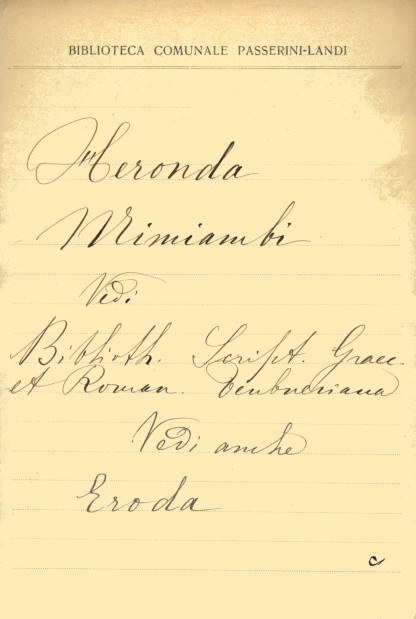 BIBLIOTECA COMUNALE PASSERINI-LANDI
Heronda
Mimiambi
Vedi
Biblioth. Script. Graec.
et Roman. Teubneriana
Vedi anche
Eroda
c